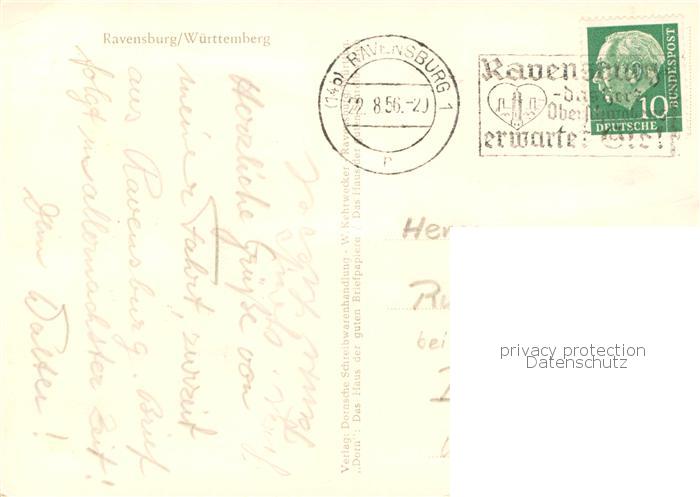 Ravensburg/Württemberg
(14b) RAVENSBURG 1
22. 8.56.-20
Ravensburg
-das Herz
Oberschwabens
erwartet Sie!
DEUTSCHE
BUNDESPOST
10
Herzliche Grüße von
meiner Fahrt zurzeit
aus Ravensburg. Brief
folgt in allernächster Zeit!
Dein Walter!
Verlag: Dornsche Schreibwarenhandlung - W. Kehrwecker, Ravensburg
„Dorn": Das Haus der guten Briefpapiere / Das Haus der
Herrn
bei
privacy protection
Datenschutz